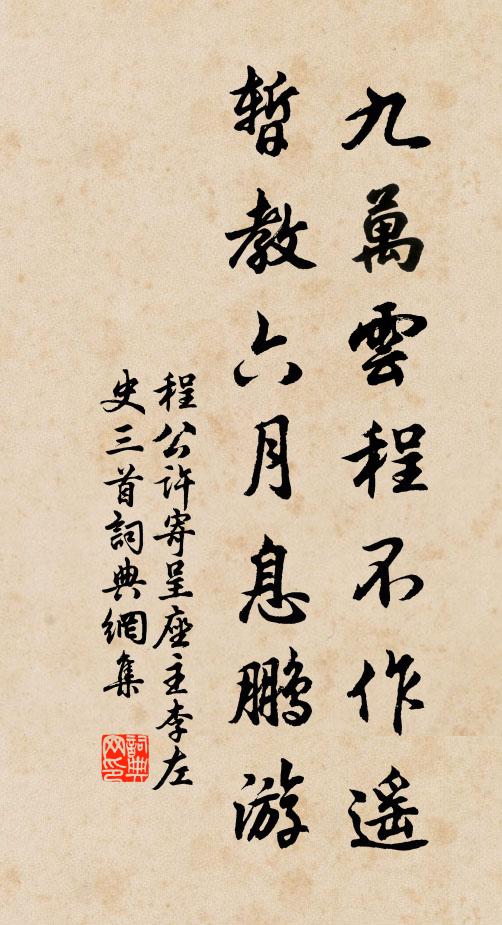 九萬雲程不作遥
暫教六月息鵬游
程公許寄呈座主李左
史三首詞典網集
詞典网印